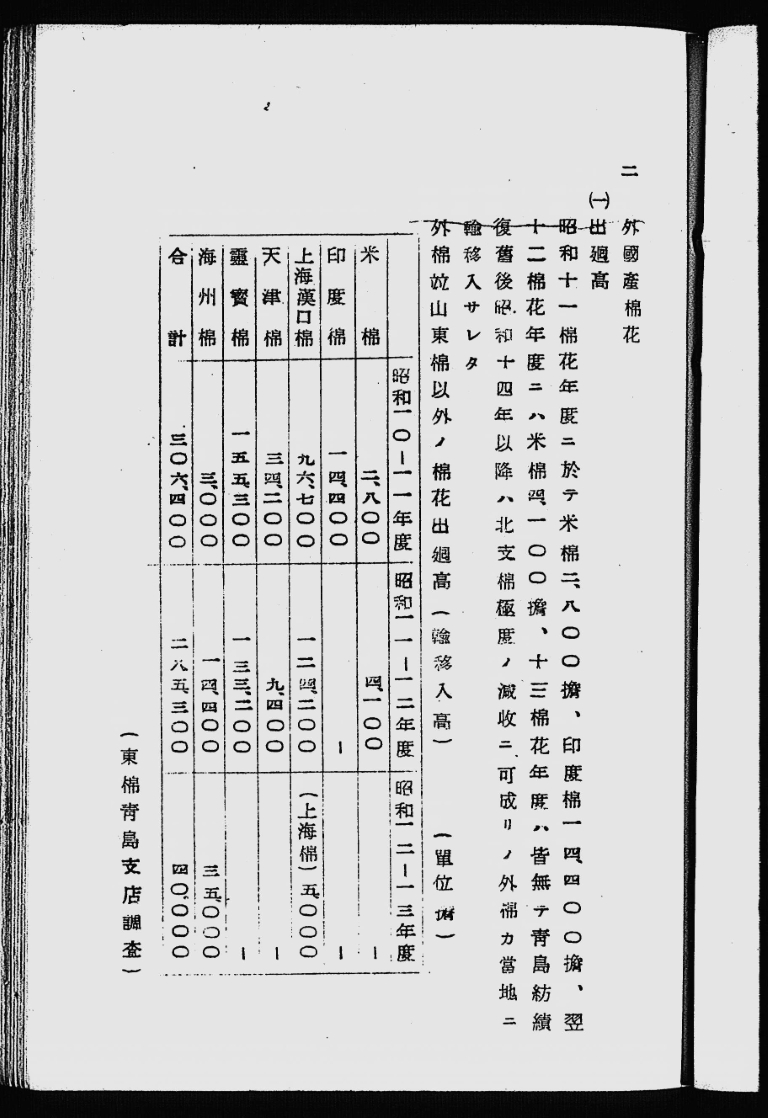 二　外國產棉花
㈠出廻高
昭和十一棉花年度ニ於テ米棉二、八〇〇擔、印度棉一四、四〇〇擔、翌
十二棉花年度ニハ米棉四、一〇〇擔、十三棉花年度ハ皆無テ靑島紡績
復舊後昭和十四年以降ハ北支棉極度ノ減收ニ可成リノ外棉カ當地ニ
輸移入サレタ
外棉竝山東棉以外ノ棉花出廻高（輸移入高）　（單位擔）
昭和一〇—一一年度　昭和一一—一二年度　昭和一二—一三年度
米棉　二、八〇〇　四、一〇〇　—
印度棉　一四、四〇〇　—　—
上海漢口棉　九六、七〇〇　一二四、二〇〇　（上海棉）五、〇〇〇
天津棉　三四、二〇〇　九、四〇〇　—
靈寶棉　一五五、三〇〇　一三三、二〇〇　—
海州棉　三、〇〇〇　一四、四〇〇　三五、〇〇〇
合計　三〇六、四〇〇　二八五、三〇〇　四〇、〇〇〇
（東棉靑島支店調査）